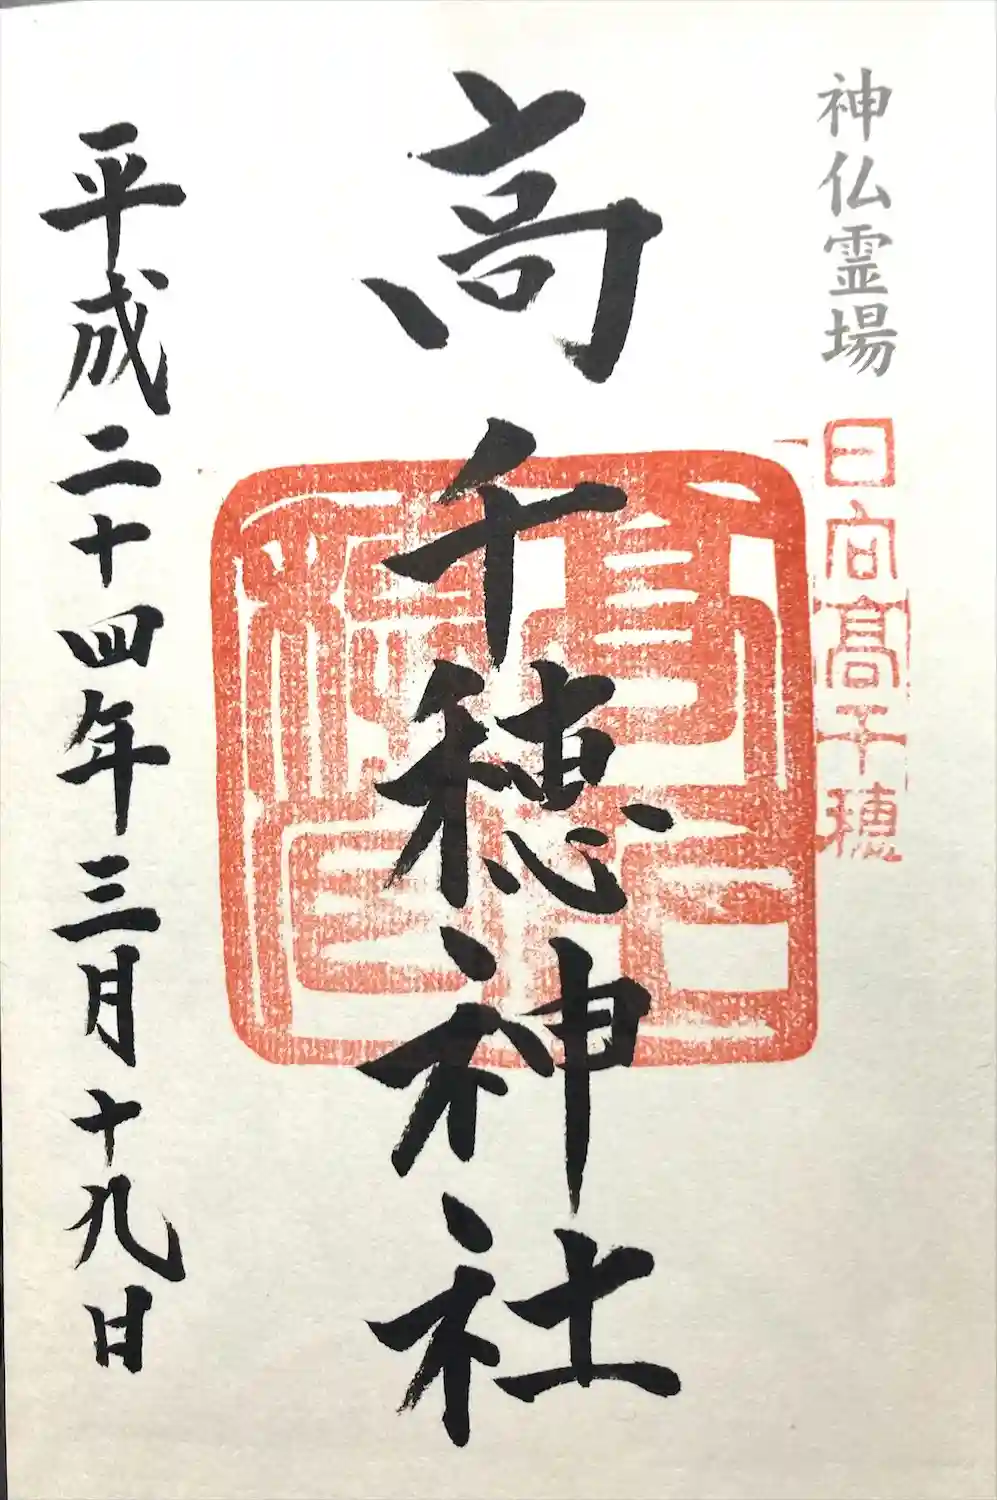 神仏霊場
日向髙千穂
高千穂神社
平成二十四年三月十九日